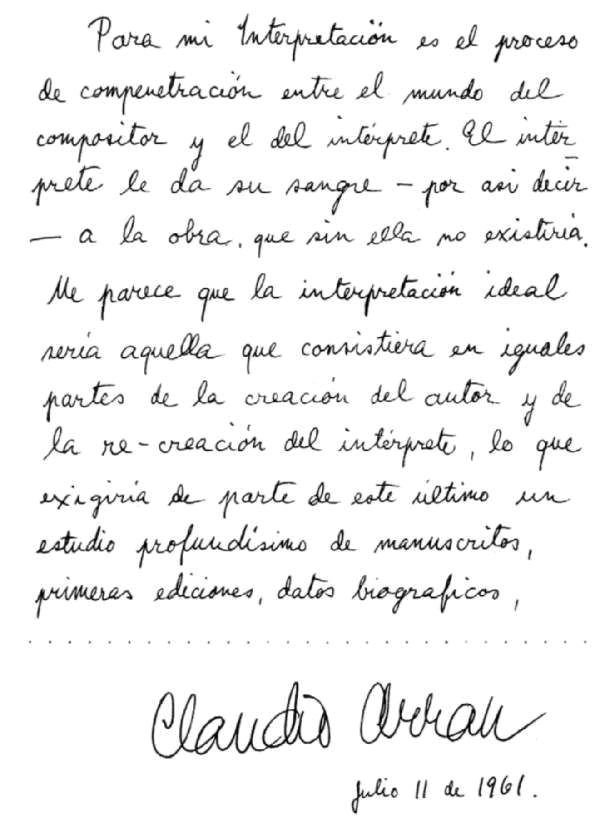 Para mi Interpretación es el proceso
de compenetración entre el mundo del
compositor y el del intérprete. El intér-
prete le da su sangre – por asi decir
— a la obra, que sin ella no existiría.
Me parece que la interpretación ideal
sería aquella que consistiera en iguales
partes de la creación del autor y de
la re-creación del intérprete, lo que
exigiría de parte de este último un
estudio profundísimo de manuscritos,
primeras ediciones, datos biograficos,
. . . . . . . . . . . . . . . . . . . . . . . . . . . . . .
Claudio Arrau
Julio 11 de 1961.